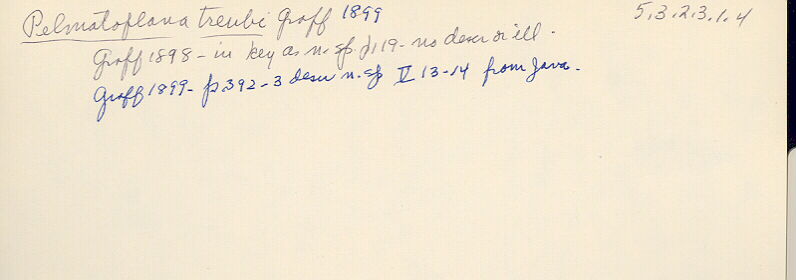 Pelmatoplana treubi Graff 1899 5.3.2.3.1.4
Graff 1898 - in key as n. sp. p. 119 - no descr or ill.
Graff 1899 - p. 392-3 descr n. sp V 13-14 from Java.